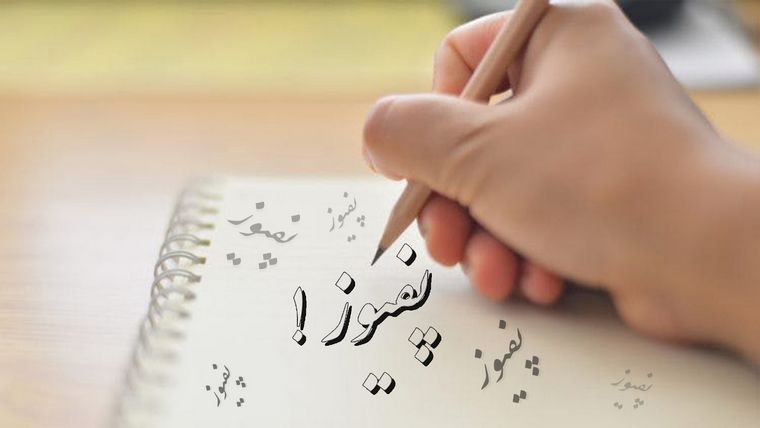 پفیوز
پفیوز
پفیوز !
پفیوز
پفیوز
پفیوز